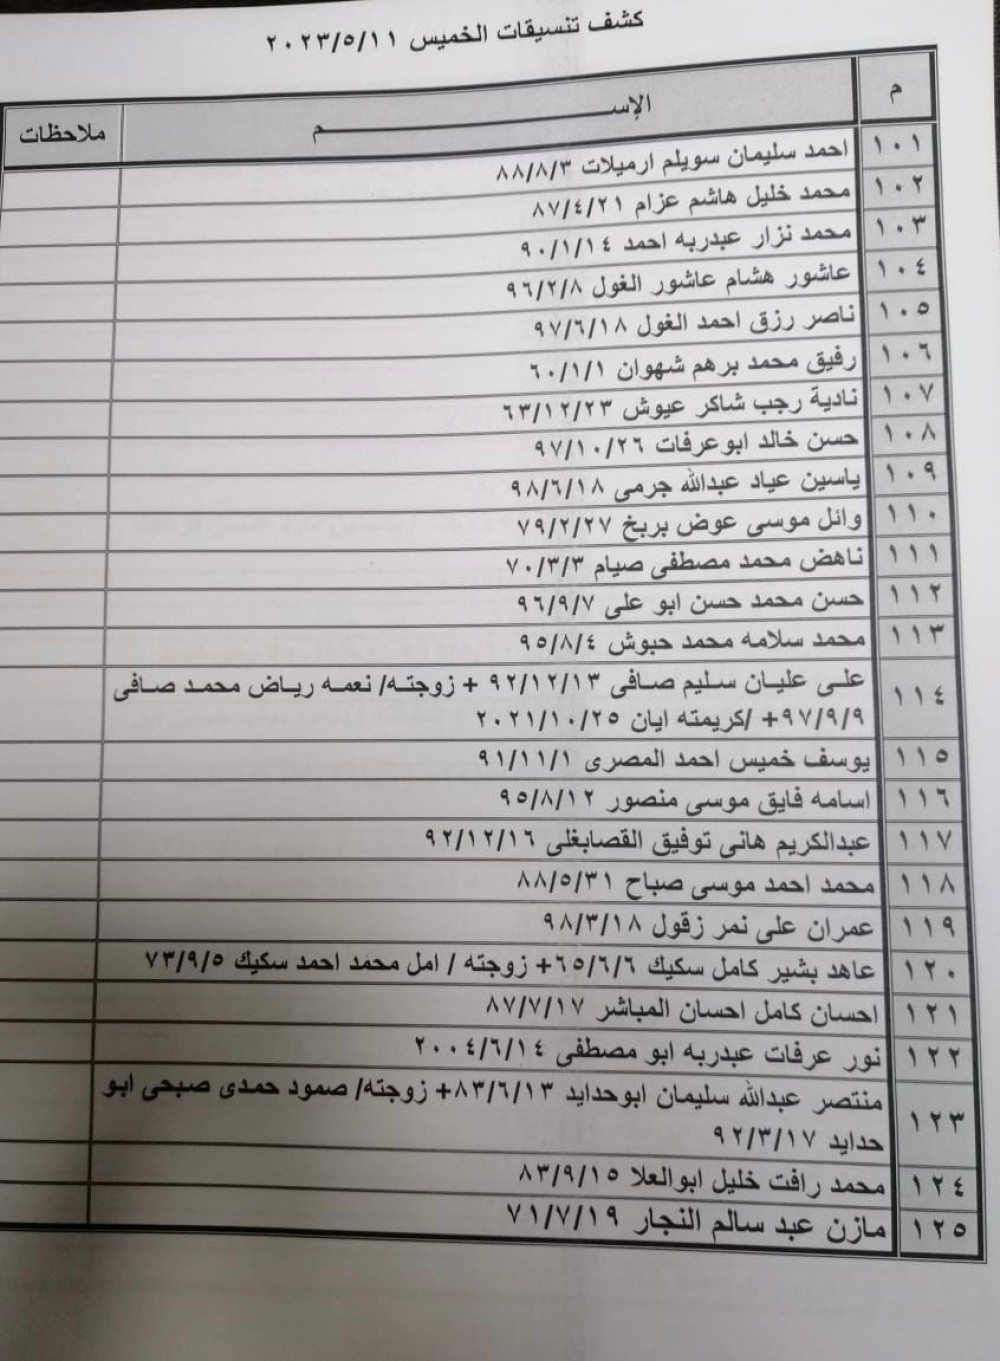 كشف تنسيقات الخميس ٢٠٢٣/٥/١١
م الإســـــــــــــــــــم ملاحظات
١٠١ احمد سليمان سويلم ارميلات ٨٨/٨/٣
١٠٢ محمد خليل هاشم عزام ٨٧/٤/٢١
١٠٣ محمد نزار عبدربه احمد ٩٠/١/١٤
١٠٤ عاشور هشام عاشور الغول ٩٦/٢/٨
١٠٥ ناصر رزق احمد الغول ٩٧/٦/١٨
١٠٦ رفيق محمد برهم شهوان ٦٠/١/١
١٠٧ نادية رجب شاكر عيوش ٦٣/١٢/٢٣
١٠٨ حسن خالد ابوعرفات ٩٧/١٠/٢٦
١٠٩ ياسين عياد عبدالله جرمى ٩٨/٦/١٨
١١٠ وائل موسى عوض بربخ ٧٩/٢/٢٧
١١١ ناهض محمد مصطفى صيام ٧٠/٣/٣
١١٢ حسن محمد حسن ابو على ٩٦/٩/٧
١١٣ محمد سلامه محمد حبوش ٩٥/٨/٤
١١٤ على عليان سليم صافى ٩٢/١٢/١٣ + زوجته/ نعمه رياض محمد صافى
٩٧/٩/٩+ /كريمته ايان ٢٠٢١/١٠/٢٥
١١٥ يوسف خميس احمد المصرى ٩١/١١/١
١١٦ اسامه فايق موسى منصور ٩٥/٨/١٢
١١٧ عبدالكريم هانى توفيق القصابغلى ٩٢/١٢/١٦
١١٨ محمد احمد موسى صباح ٨٨/٥/٣١
١١٩ عمران على نمر زقول ٩٨/٣/١٨
١٢٠ عاهد بشير كامل سكيك ٦٥/٦/٦+ زوجته / امل محمد احمد سكيك ٧٣/٩/٥
١٢١ احسان كامل احسان المباشر ٨٧/٧/١٧
١٢٢ نور عرفات عبدربه ابو مصطفى ٢٠٠٤/٦/١٤
١٢٣ منتصر عبدالله سليمان ابوحدايد ٨٣/٦/١٣+ زوجته/ صمود حمدى صبحى ابو
حدايد ٩٢/٣/١٧
١٢٤ محمد رافت خليل ابوالعلا ٨٣/٩/١٥
١٢٥ مازن عبد سالم النجار ٧١/٧/١٩